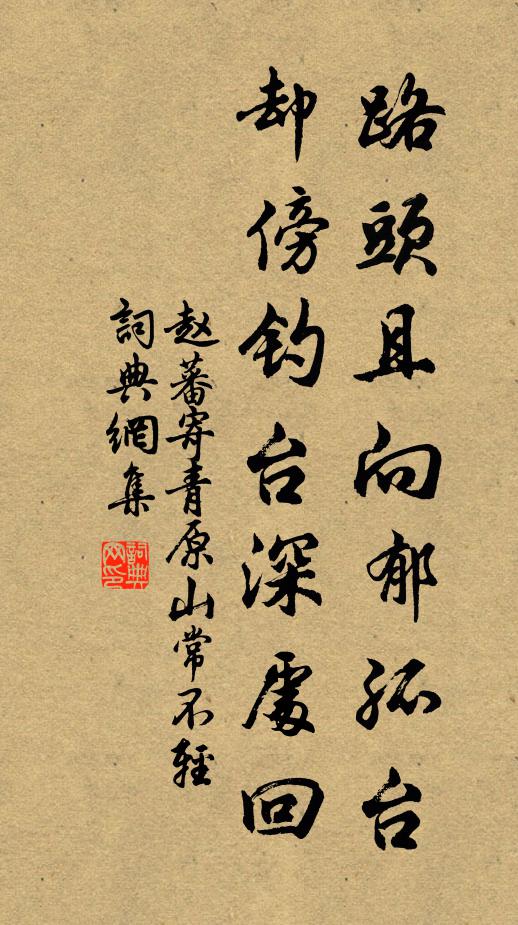 路頭且向郁孤台
却傍釣台深處回
赵蕃寄青原山常不輕
詞典網集
詞典網印